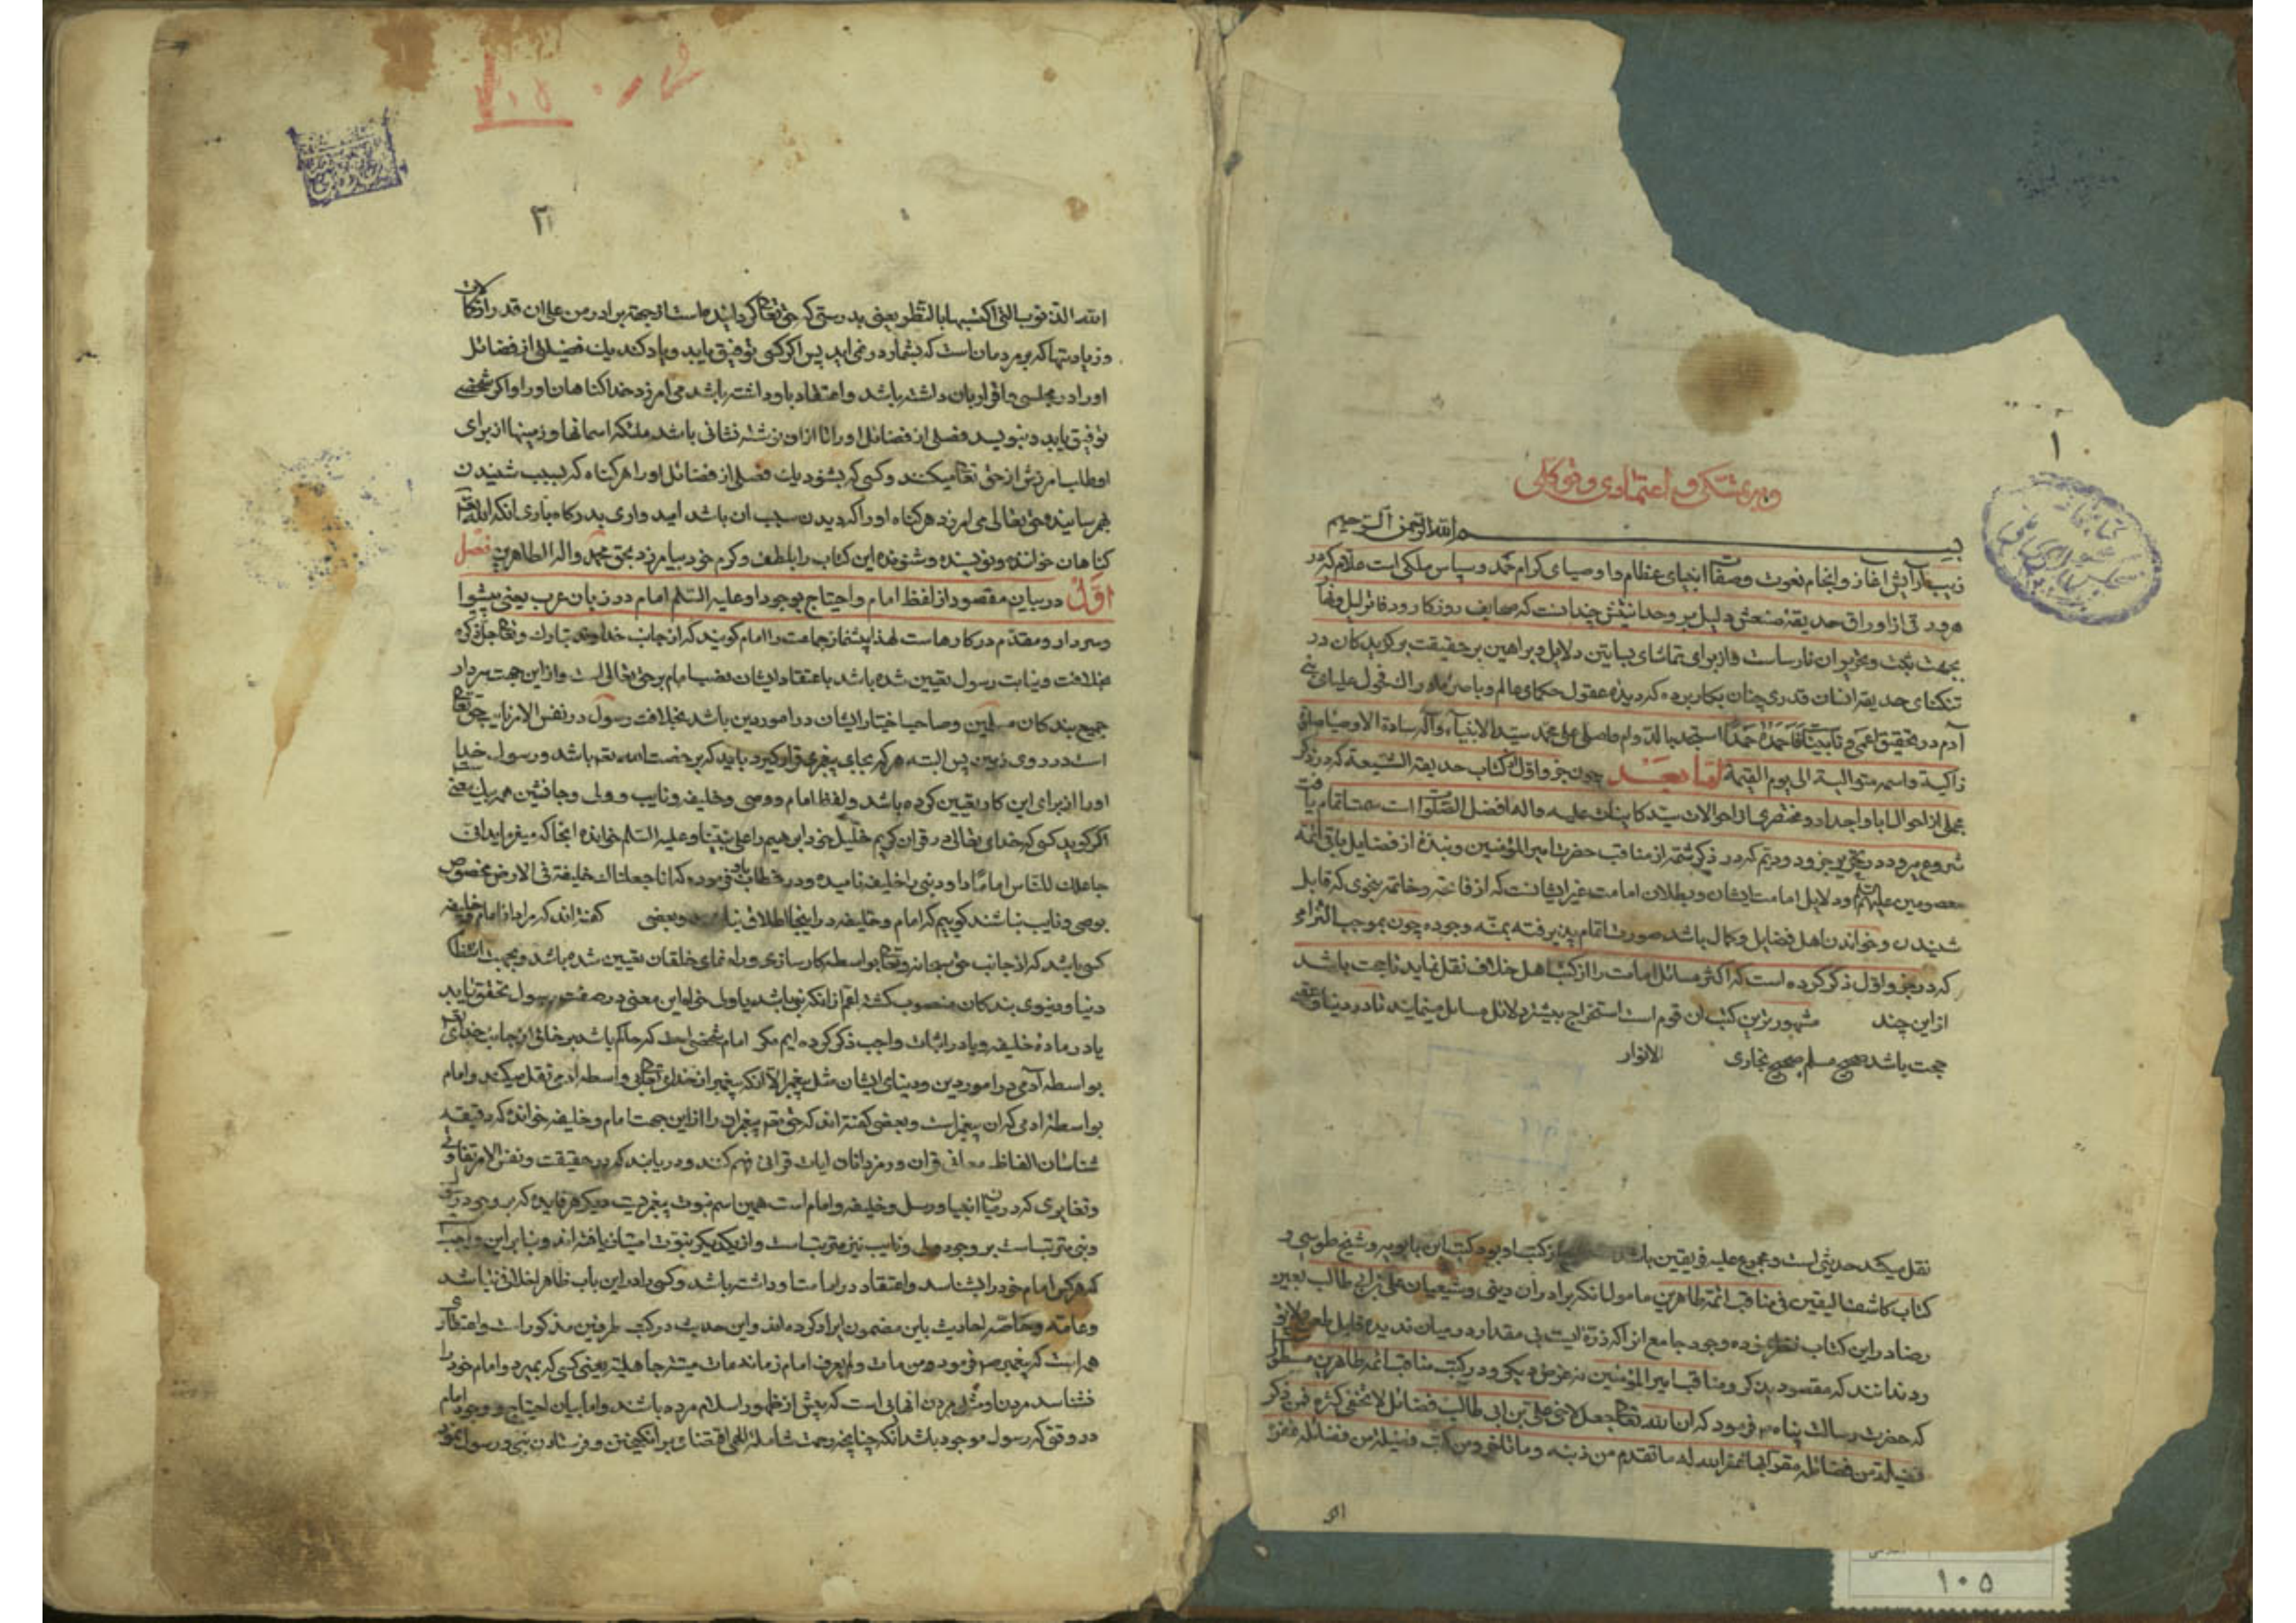 ۱
و به ثقتی و اعتمادی و توکلی
بسم الله الرحمن الرحیم
زیب آرایش آغاز و انجام نعوت و صفات انبیای عظام و اوصیای کرام حمد و سپاس ملکی است علام که در
هر ورقی از اوراق حدیقه صنعش دلیل بر وحدانیتش چندانست که صحایف روزگار و دفاتر لیل و نهار
بجهت بحث و تحریر ان نارساست و از برای تماشای بساتین دلایل و براهین بر حقیقت برکزیدکان در
تنکنای حدیقه انسان قدری چنان بکار برده که دیده عقول حکمای عالم و باصره ادراک فحول علمای بنی
آدم در تحقیق اعمی و نابیناست فاحمده حمدا استجد بالدوام واصلی علی محمد سید الانبیاء وآله سادة الاوصیا صلوة
زاکیة واسمه متوالیة الی یوم القیمة اما بعد چون جزو اول از کتاب حدیقة الشیعه که در ذکر
مجملی از احوال ابا و اجداد و مختصری از احوالات سید کاینات علیه واله افضل الصلوات است سمت اتمام یافت
شروع میرود در تحریر جزو دویم که در ذکر شمه از مناقب حضرت امیر المؤمنین و نبذه از فضایل باقی ائمه
معصومین علیهم السلم و دلایل امامت ایشان و بطلان امامت غیر ایشانست که از فاتحه و خاتمه بنحوی که قابل
شنیدن و خواندن اهل فضایل و کمال باشد صورت اتمام پذیرفته بمنه وجوده چون بموجب التزامی
که در جزو اول ذکر کرده است که اکثر مسائل امامت را از کتب اهل خلاف نقل نماید تا حجت باشد
از این چند مشهورترین کتب ان قوم است استخراج بیشتر دلائل مسایل مینماید تا در دنیا و عقبی
حجت باشد صحیح مسلم صحیح بخاری الانوار
نقل میکند حدیثی است و مجموع علیه فریقین باشد از کتب او بود کتب ابن بابویه و شیخ طوسی و
کتاب کاشف الیقین فی مناقب ائمة طاهرین مامول انکه برادران دینی و شیعیان علی بن ابی طالب بعین
رضا در این کتاب نظر نموده وجود جامع انرا که ذره ایست بی مقدار در میان ندیده قابل
رد ندانند که مقصود بذکر و مناقب امیر المؤمنین نه غرض دیکری و در کتب مناقب ائمه طاهرین مسطور
که حضرت رسالت پناه ص فرمود که ان الله تعالی جعل لاخی علی بن ابی طالب فضائل لا تحصی کثرة فمن ذکر
فضیلة من فضائله مقرا بها غفر الله له ما تقدم من ذنبه وما تاخر ومن کتب فضیلة من فضائله
۲
الله الذنوب التی اکتسبها بالنظر یعنی بدرستی که حق تعالی کردانیده است از جهة برادر من علی ان قدر از کمالات
و زیادتیها که بر مردمان است که بشمار در نمی اید پس اکر کسی توفیق یابد و یاد کند یک فضیلتی از فضائل
او را در مجلسی و اقرار بان داشته باشد و اعتقاد باو داشته باشد می امرزد خدا کناهان او را و اکر شخصی
توفیق یابد و بنویسد فضلی از فضائل او را تا از ان نوشته نشانی باشد ملئکه اسمانها و زمینها از برای
او طلب امرزش از حق تعالی میکنند و کسی که بشنود یک فضلی از فضائل او را هر کناه که بسبب شنیدن
بهم رسانیده حق تعالی می امرزد هر کناه او را که دیدن سبب ان باشد امید واری بدرکاه باری انکه الله تعالی
کناهان خواننده و نویسنده و شنونده این کتاب را بلطف و کرم خود بیامرزد بحق محمد واله الطاهرین فصل
اول در بیان مقصود از لفظ امام و احتیاج بوجود او علیه السلم امام در زبان عرب یعنی پیشوا
و سردار و مقدم در کارهاست لهذا پیشنماز جماعت را امام کویند که از جانب خداوند تبارک و تعالی جل ذکره
بخلافت و نیابت رسول تعیین شده باشد باعتقاد ایشان نصب امام بر حق تعالی است و از این جهت سردار
جمیع بندکان مسلمین و صاحب اختیار ایشان در امور دین باشد بخلافت رسول در نفس الامر نایب حق تعالی
است در روی زمین پس البته هر که بجای پیغمبری قرار کیرد باید که برخصت الله تعم باشد و رسول خدا
او را از برای این کار تعیین کرده باشد و لفظ امام و وصی و خلیفه و نایب و ولی و جانشین همه بیک معنی است
اکر کوید کسی که خدای تعالی در قران کریم خلیل خود ابرهیم را علی نبینا وعلیه السلم خوانده انجا که میفرماید انی
جاعلک للناس اماما و داود نبی را خلیفه نامیده و در خطاب باو فرموده که انا جعلناک خلیفة فی الارض مخصوص
بوصی و نایب نباشند کوییم که امام و خلیفه در اینجا اطلاق و بعضی کفته اند که مراد از امام و خلیفه
کسی باشد که از جانب حق سبحانه وتعالی بواسطه کارسازی و راه نمای خلقان تعیین شده باشد و بجهت انتظام
دنیا و دنیوی بندکان منصوب کشته اعم از انکه نبی باشد یا ولی
یا در ماده خلیفه و یا در اثبات واجب ذکر کرده ایم مکر امام شخصی است که حاکم باشد بر خلق از جانب خدای تعم
بواسطه آدمی در امور دین و دنیای ایشان مثل پیغمبر الا انکه پیغمبر از خدای تعالی بی واسطه ادمی نقل میکند و امام
بواسطه ادمی که ان پیغمبر است و بعضی کفته اند که حق تعم پیغمبران را از این جهت امام و خلیفه خوانده که دقیقه
شناسان الفاظ معانی قران و رمزدانان ایات قرانی فهم کنند و دریابند که در حقیقت و نفس الامر تفاوتی
و تغایری که در میان انبیا و رسل و خلیفه و امام است همین اسم نبوت پیغمبریت دیکر هر فایده که بر وجود رسول
و نبی مترتبست بر وجود ولی و نایب نیز مترتب است و از یکدیکر بنبوت امتیاز یافته اند و بنابر این واجبست
که هر کس امام خود را بشناسد و اعتقاد در امامت او داشته باشد و کسی را در این باب ظاهرا خلافی نباشد
و عامه و خاصه احادیث باین مضمون ایراد کرده اند و این حدیث در کتب طرفین مذکور است و اعتقاد
همه است که پیغمبر ص فرمود من مات ولم یعرف امام زمانه مات میتة جاهلیة یعنی کسی که بمیرد و امام خود را
نشناسد مردن او مثل مردن انهائی است که پیش از ظهور اسلام مرده باشند و اما بیان احتیاج و وجود امام
در وقتی که رسول موجود باشد انکه چنانچه رحمت شامله الهی اقتضای برانکیختن و فرستادن نبی و رسول نمود
۱۰۵